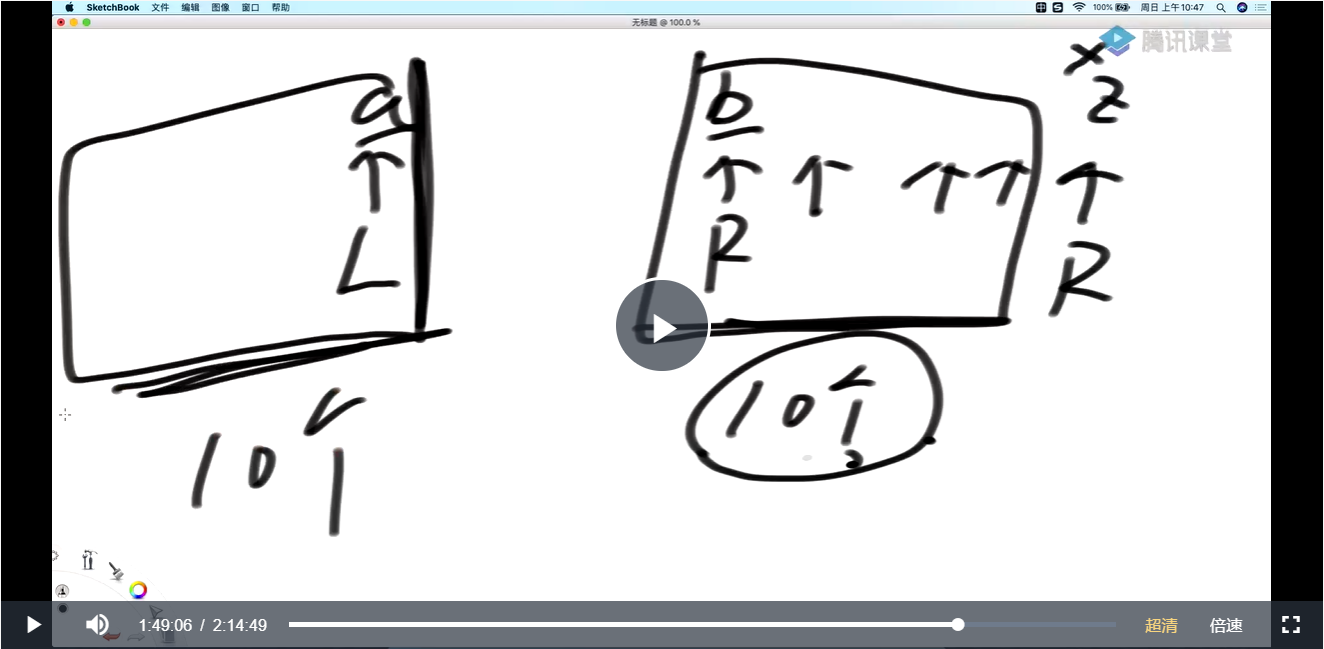 SketchBook 文件 编辑 图像 窗口 帮助
100% 周日 上午10:47
无标题 @ 100.0 %
腾讯课堂
a
L
b
R
x
z
R
10个
10个
1:49:06 / 2:14:49
超清 倍速